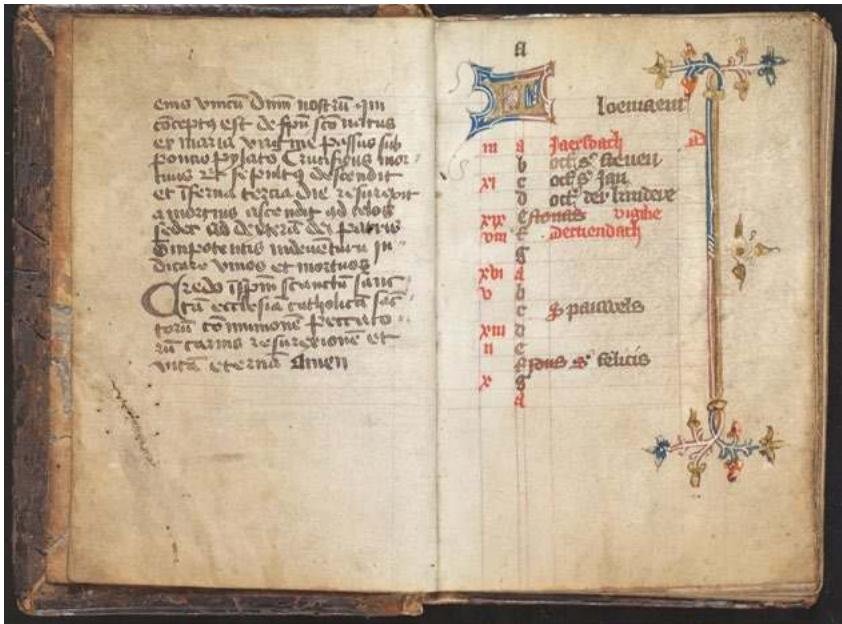 eius vnicū dnm̄ nostrū qui
cōceptꝯ est de spū scō natus
ex maria virgine Passus sub
poncio pylato Crucifixus mor
tuus Et sepultꝯ descendit
et īferna tercia die resurexit
a mortuis ascendit ad celos
sedet ad dexterā dei patris
Omnipotentis indeuēturꝯ iu
dicare viuos et mortuos
Credo ī spm̄ sanctum sanc
tā ecclesiā catholicā sāc
torū cōmunionē Peccato
rū carnis resurexionē et
vitā eternā Amen
a
loemaent
iii a Jaersdach
b octꝭ sꝭ steuen
xi c octꝭ sꝭ Jan
d octꝭ der kindere
xix e nonas vigilie
viii f Dertiendach
g
xvi a
v b
c S pauwels
xiii d
ii e
f ydus sꝭ felicis
x g
a